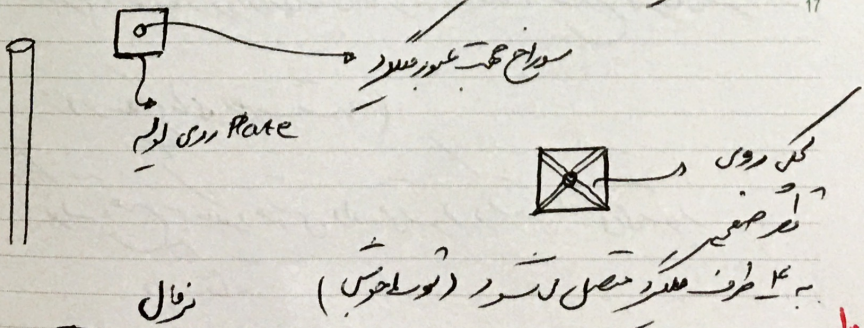 17
سوراخ جهت عبور میلگرد
Plate روی لوله
روی
به ۴ طرف میلگرد متصل می شود (توسط جوش)